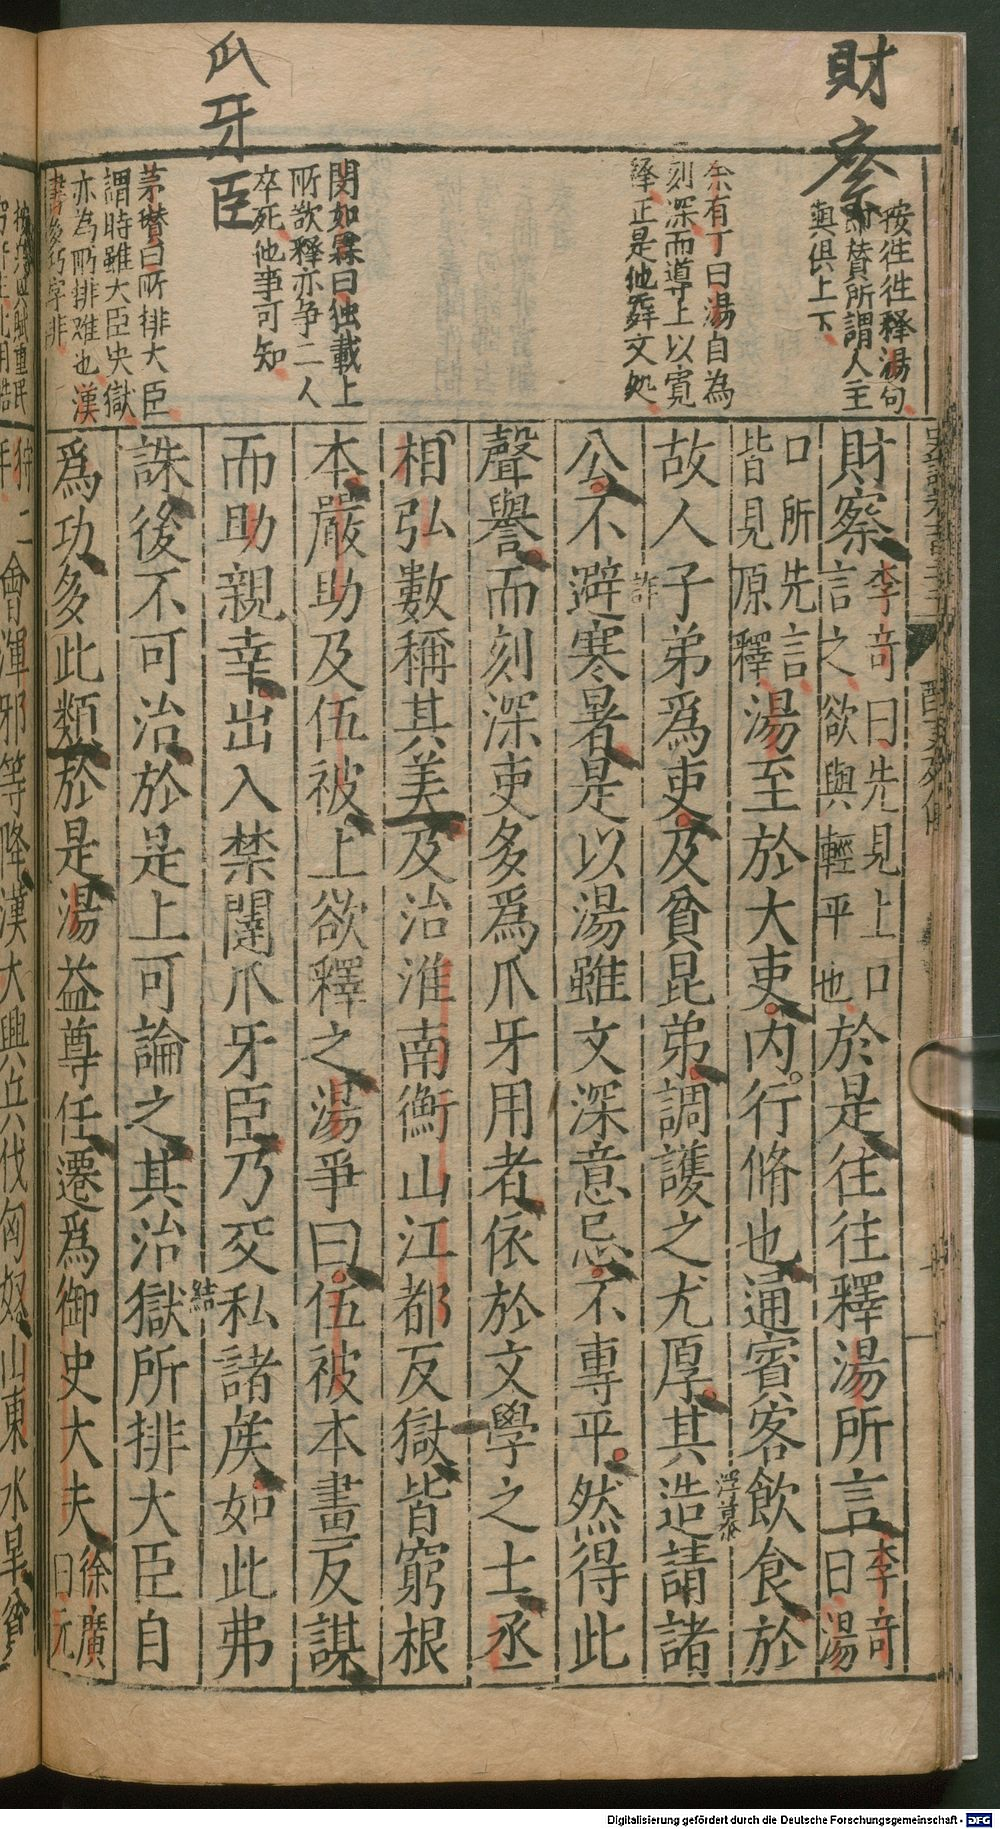 財察
按往往釋湯句
即賛所謂人主
與俱上下
余有丁曰湯自為
刻深而導上以寛
釋正是他舜文处
爪牙臣
閔如霖曰独載上
所欲釋亦争二人
卒死他事可知
茅瓚曰所排大臣
謂時雖大臣史獄
亦為所排难也漢
財察李竒曰先見上口
言之欲與輕平也於是往往釋湯所言李竒
曰湯
口所先言
皆見原釋湯至於大吏内行脩也通賓客飲食於
故人子弟爲吏及貧昆弟調護之尤厚其造請諸
公不避寒暑是以湯雖文深意忌不專平然得此
聲譽而刻深吏多爲爪牙用者依於文學之士丞
相弘數稱其美及治淮南衡山江都反獄皆窮根
本嚴助及伍被上欲釋之湯爭曰伍被本畫反謀
而助親幸出入禁闥爪牙臣乃交私諸侯如此弗
結
誅後不可治於是上可論之其治獄所排大臣自
爲功多此類於是湯益尊任遷爲御史大夫徐廣
曰元
會渾邪等降漢大興兵伐匈奴山東水旱貧
Digitalisierung gefördert durch die Deutsche Forschungsgemeinschaft - DFG